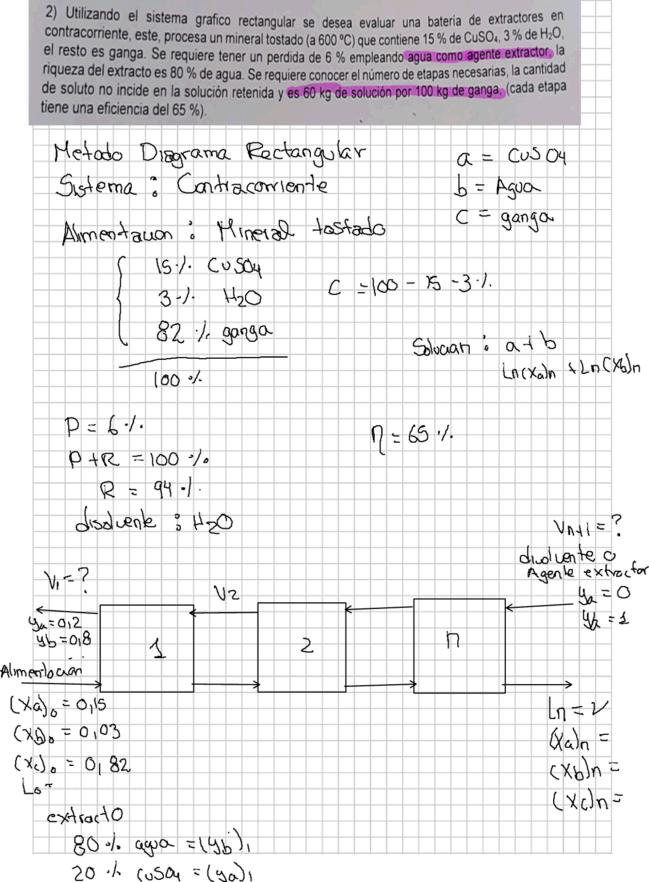 2) Utilizando el sistema grafico rectangular se desea evaluar una bateria de extractores en
contracorriente, este, procesa un mineral tostado (a 600 ºC) que contiene 15 % de CuSO₄, 3 % de H₂O,
el resto es ganga. Se requiere tener un perdida de 6 % empleando agua como agente extractor, la
riqueza del extracto es 80 % de agua. Se requiere conocer el número de etapas necesarias, la cantidad
de soluto no incide en la solución retenida y es 60 kg de solución por 100 kg de ganga, (cada etapa
tiene una eficiencia del 65 %).
Metodo Diagrama Rectangular
Sistema : Contracorriente
a = CuSO4
b = Agua
c = ganga
Alimentacion : Mineral tostado
15 % CuSO4
3 % H2O
82 % ganga
100 %
C = 100 - 15 - 3 %
Solucion : a + b
Ln(Xa)n + Ln(Xb)n
P = 6 %
P + R = 100 %
R = 94 %
disolvente : H2O
η = 65 %
Vn+1 = ?
disolvente o
Agente extractor
ya = 0
yb = 1
V1 = ?
V2
ya = 0,2
yb = 0,8
1
2
n
Alimentación
(Xa)o = 0,15
(Xb)o = 0,03
(Xc)o = 0,82
Lo =
Ln = ?
(Xa)n =
(Xb)n =
(Xc)n =
extracto
80 % agua = (yb)1
20 % CuSO4 = (ya)1